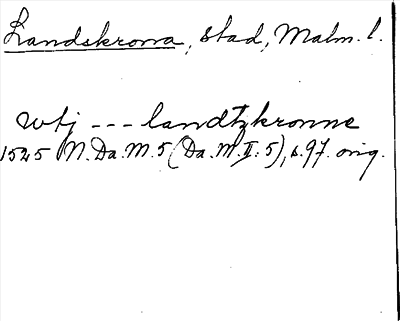 Landskrona, stad, Malm. l.
wtj --- landtzkronne
1525 N.Da.M.5 (Da.M.II:5), s.97. orig.